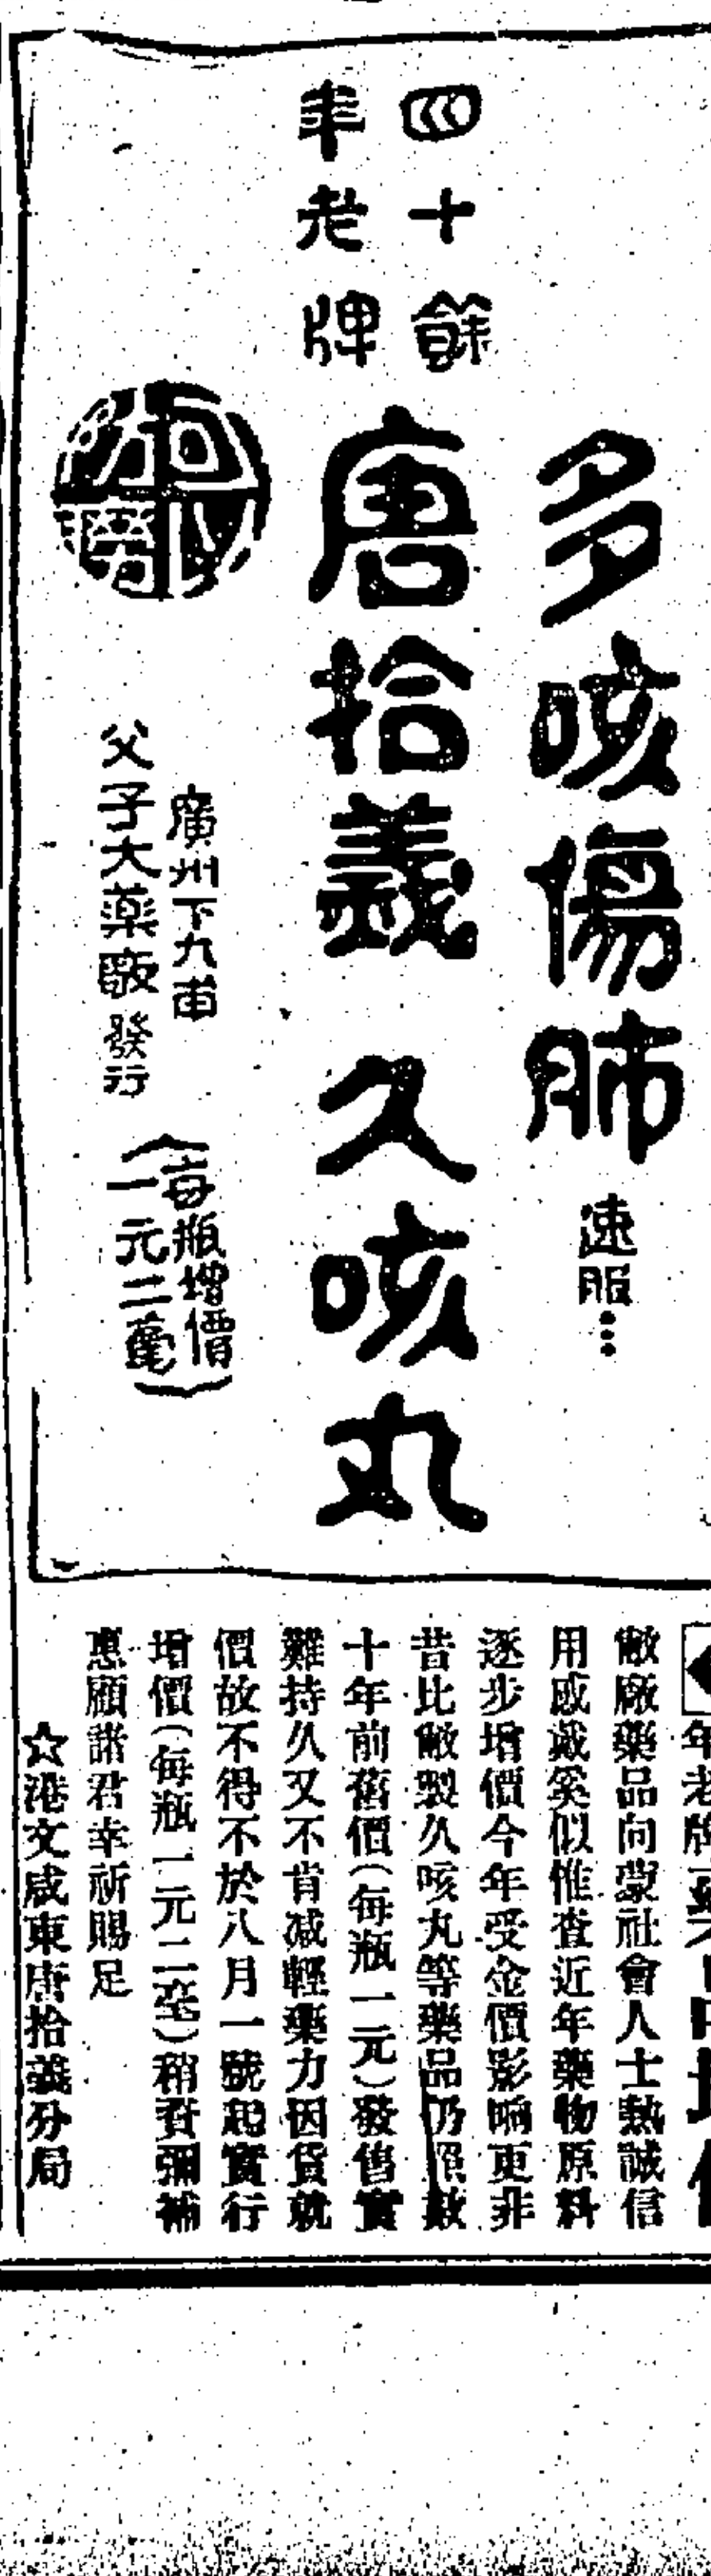 多咳傷肺 速服⋯
四十餘
年老牌
唐拾義 久咳丸
廣州下九甫
父子大藥廠發行
（每瓶增價
一元二毫）
年老牌
敝廠藥品向蒙社會人士熱誠信
用感戴奚似惟查近年藥物原料
逐步增價今年受金價影响更非
昔比敝製久咳丸等藥品仍照數
十年前舊價（每瓶一元）發售實
難持久又不肯減輕藥力因貨就
價故不得不於八月一號起實行
增價（每瓶一元二毫）稍資彌補
惠顧諸君幸祈賜足
☆港文咸東唐拾義分局